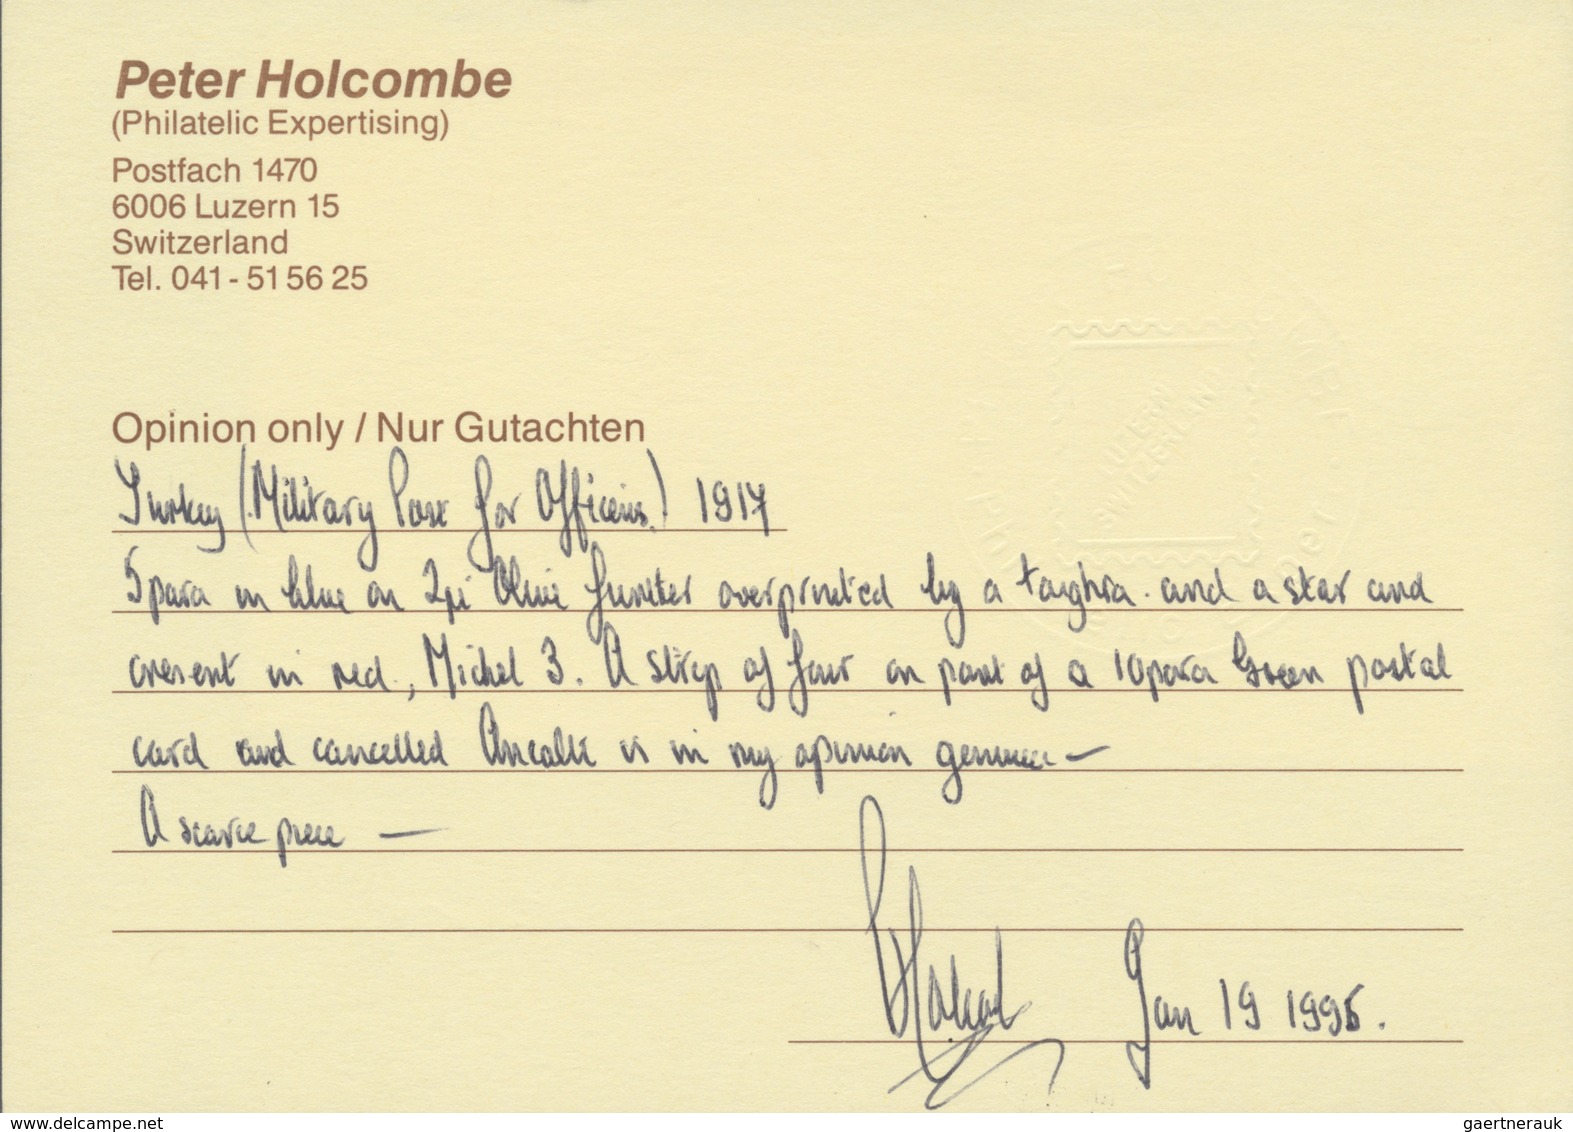 Peter Holcombe
(Philatelic Expertising)
Postfach 1470
6006 Luzern 15
Switzerland
Tel. 041 - 51 56 25
LUZERN
SWITZERLAND
Opinion only / Nur Gutachten
Turkey (Military Post for Officers) 1917
5 para in blue on 2pi Olive overprinted by a taughra and a star and
cresent in red, Michel 3. A strip of four on part of a 10 para Green postal
card and cancelled is in my opinion genuine —
A scarce piece —
Jan 19 1995.
www.delcampe.net
gaertnerauk